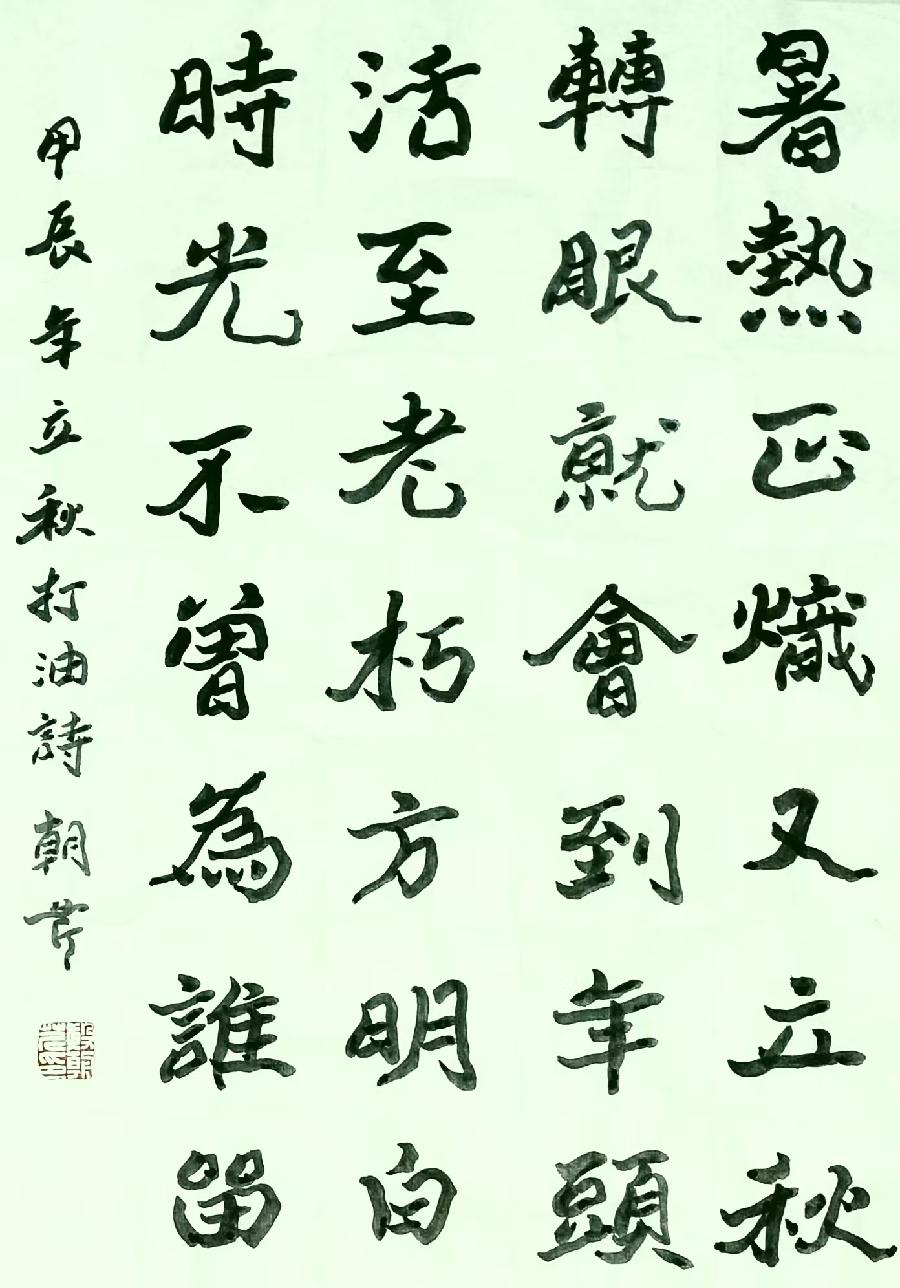 暑熱正熾又立秋
轉眼就會到年頭
活至老朽方明白
時光不曾為誰留
甲辰年立秋打油詩 朝芹